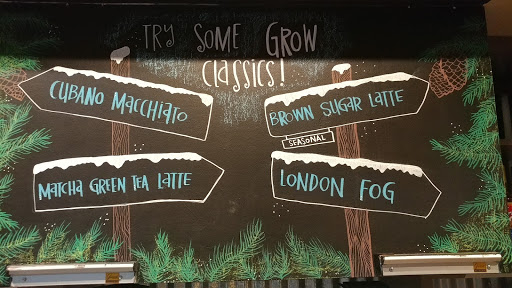 TRY SOME GROW
CLASSICS!
CUBANO MACCHIATO
BROWN SUGAR LATTE
SEASONAL
MATCHA GREEN TEA LATTE
LONDON FOG